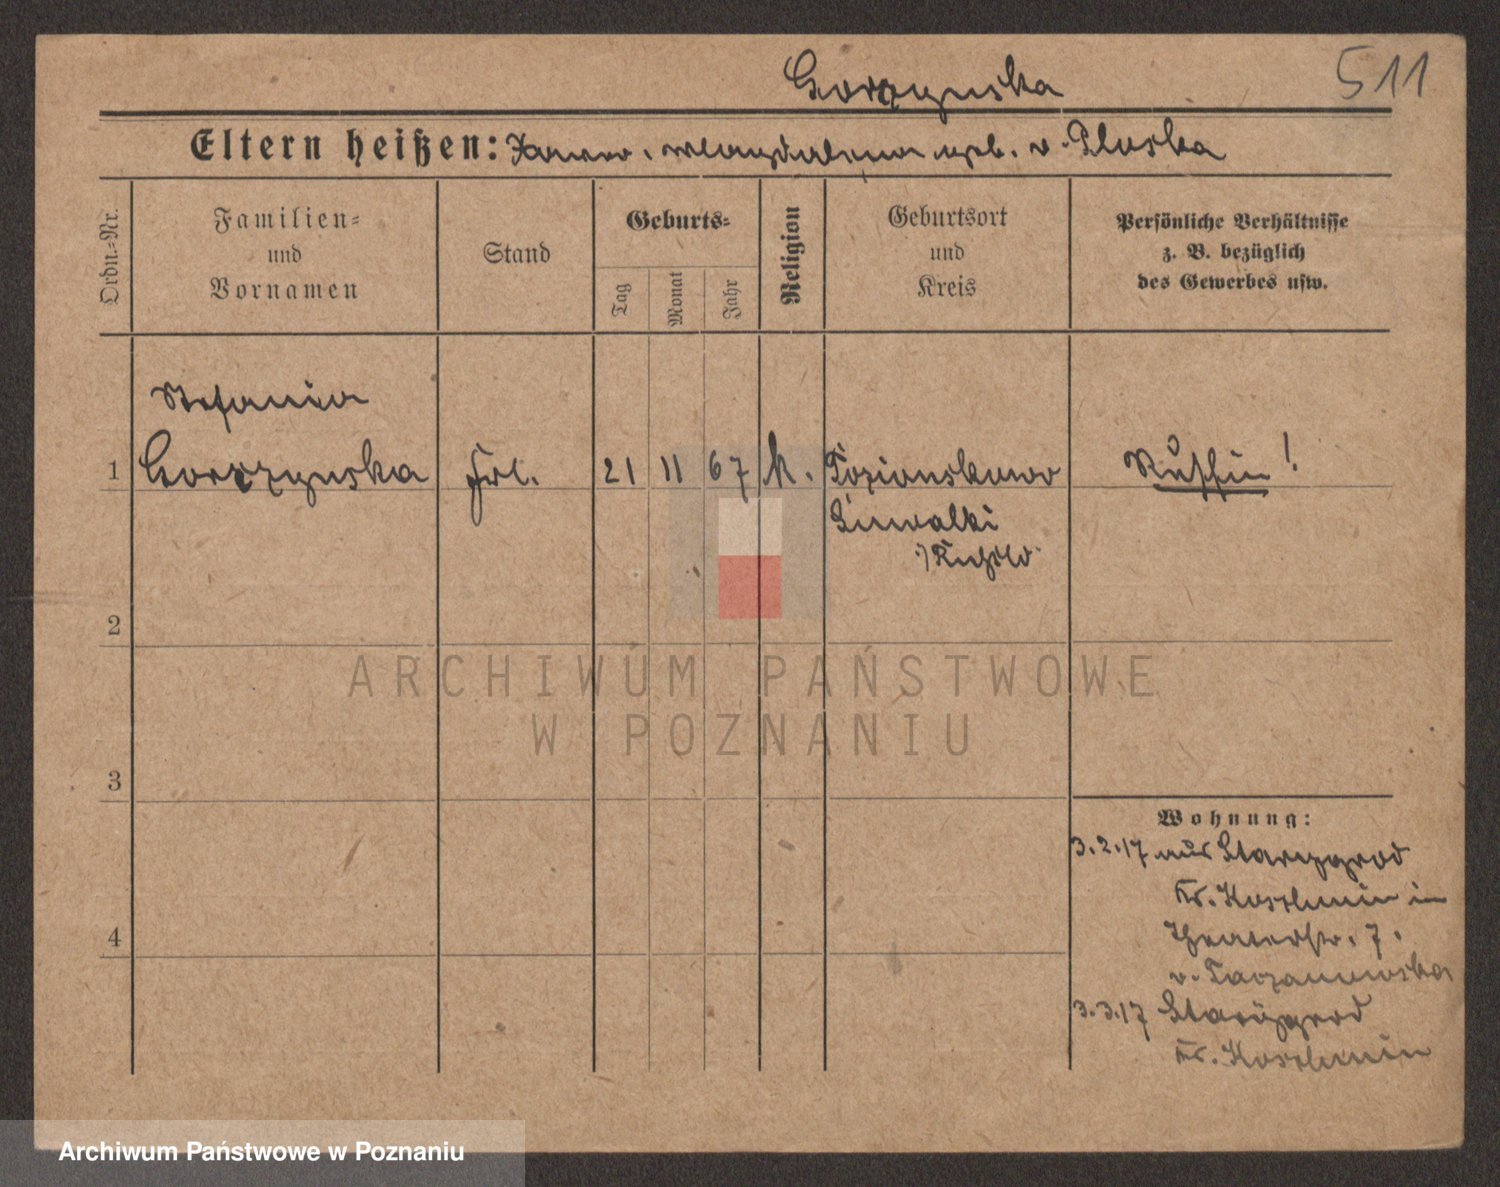 Gorzynska
511
Eltern heißen: Xaver, Magdalena geb. v. Pluska
Ordn.-Nr.
Familien-
und
Vornamen
Stand
Geburts-
Tag
Monat
Jahr
Religion
Geburtsort
und
Kreis
Persönliche Verhältnisse
z. B. bezüglich
des Gewerbes usw.
Stefania
1 Gorzynska Frl. 21 11 67 K. Russin!
Suwalki
Rußld
2
3
4
Wohnung:
3.2.17 aus Starygrod
Kr. Koschmin in
Theaterstr. 7.
v.
3.3.17 Starygrod
Kr. Koschmin
ARCHIWUM PAŃSTWOWE
W POZNANIU
Archiwum Państwowe w Poznaniu